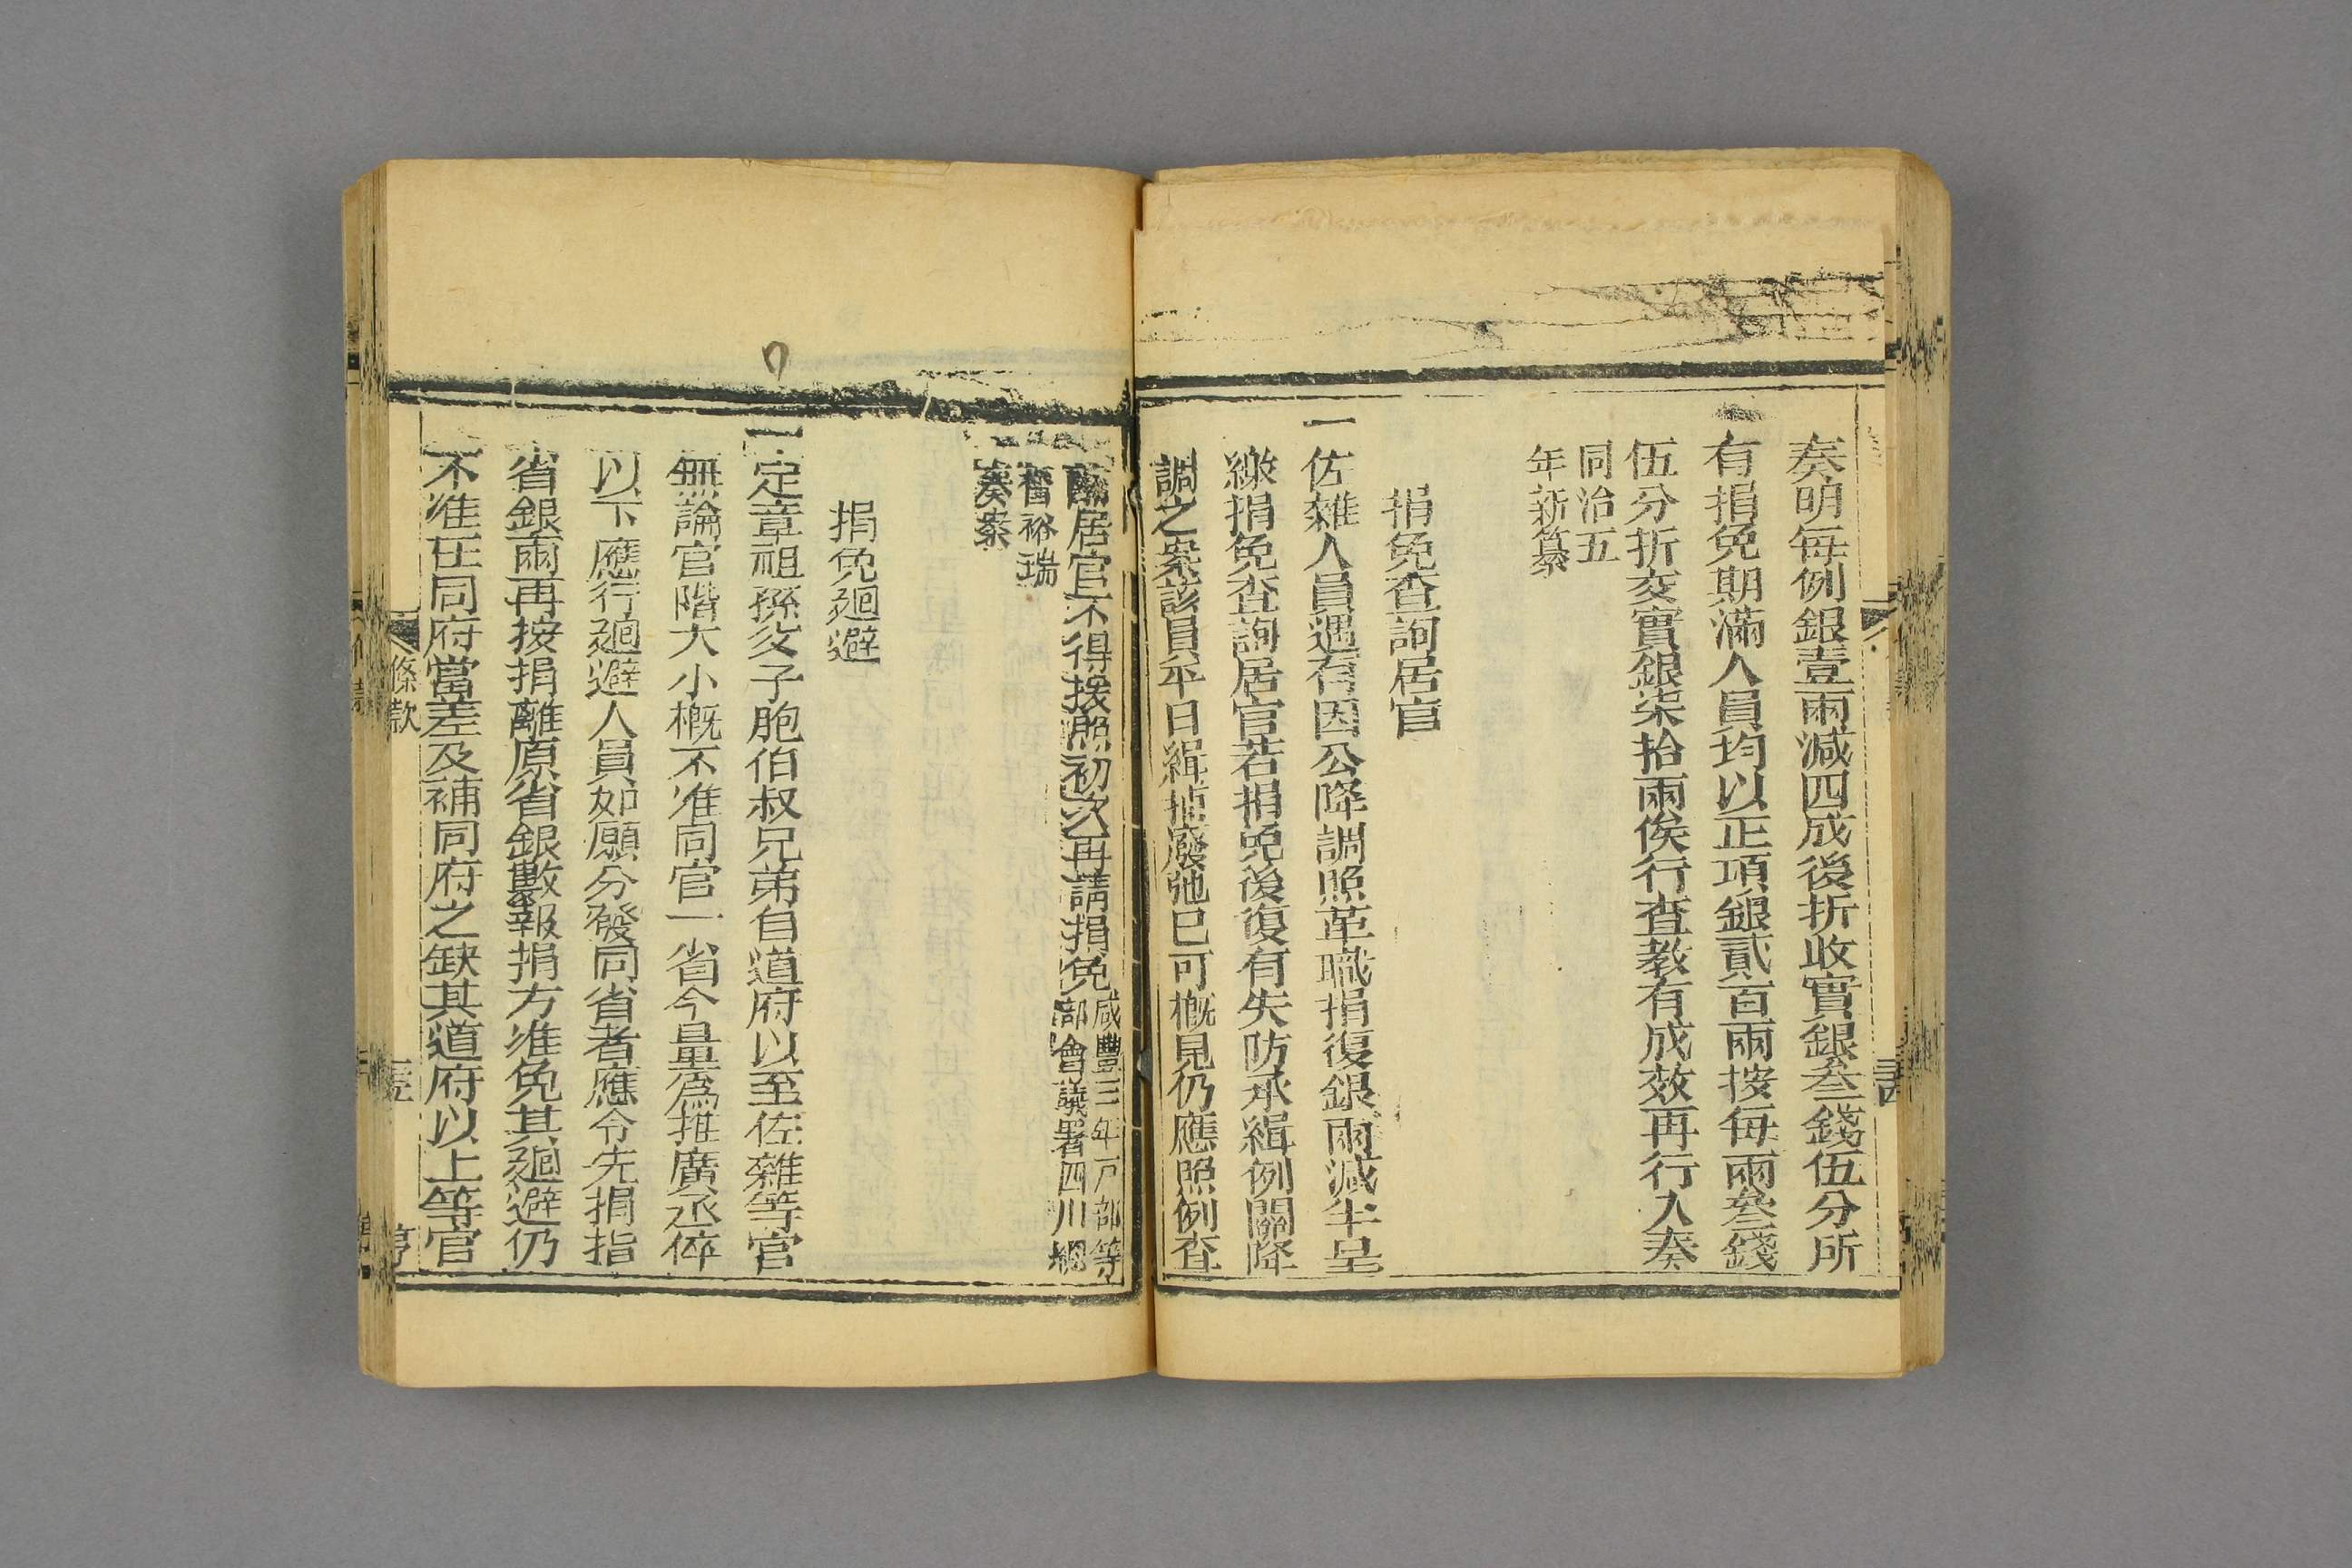 奏明每例銀壹兩減四成後折收實銀叁錢伍分所
有捐免期滿人員均以正項銀貳百兩按每兩叁錢
伍分折交實銀柒拾兩俟行查教有成效再行入奏
同治五
年新纂
捐免查詢居官
一佐雜人員遇有因公降調照革職捐復銀兩減半呈
繳捐免查詢居官若捐免後復有失防承緝例關降
調之案該員平日緝捕廢弛已可概見仍應照例查
居官不得援照初次再請捐免
咸豐三年戸部等
部會議署四川總
督裕瑞
奏案
捐免廻避
一定章祖孫父子胞伯叔兄弟自道府以至佐雜等官
無論官階大小概不准同官一省今量爲推廣丞倅
以下應行廻避人員如願分發同省者應令先捐指
省銀兩再按捐離原省銀數報捐方准免其廻避仍
不准在同府當差及補同府之缺其道府以上等官
條款